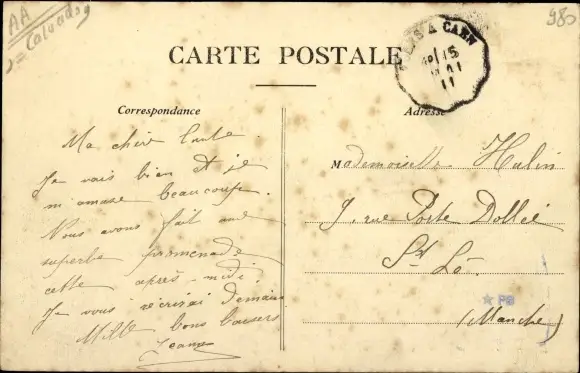 AA
Calvados
980
À CAEN
15
11
CARTE POSTALE
Correspondance
Adresse
Ma chère tante.
Je vais bien et je
m'amuse beaucoup.
Nous avons fait une
superbe promenade
cette après-midi.
Je vous récrirai demain
Mille bons baisers
Jeanne
Mademoiselle Hulin
7, rue Porte Dollée
St Lô.
(Manche)